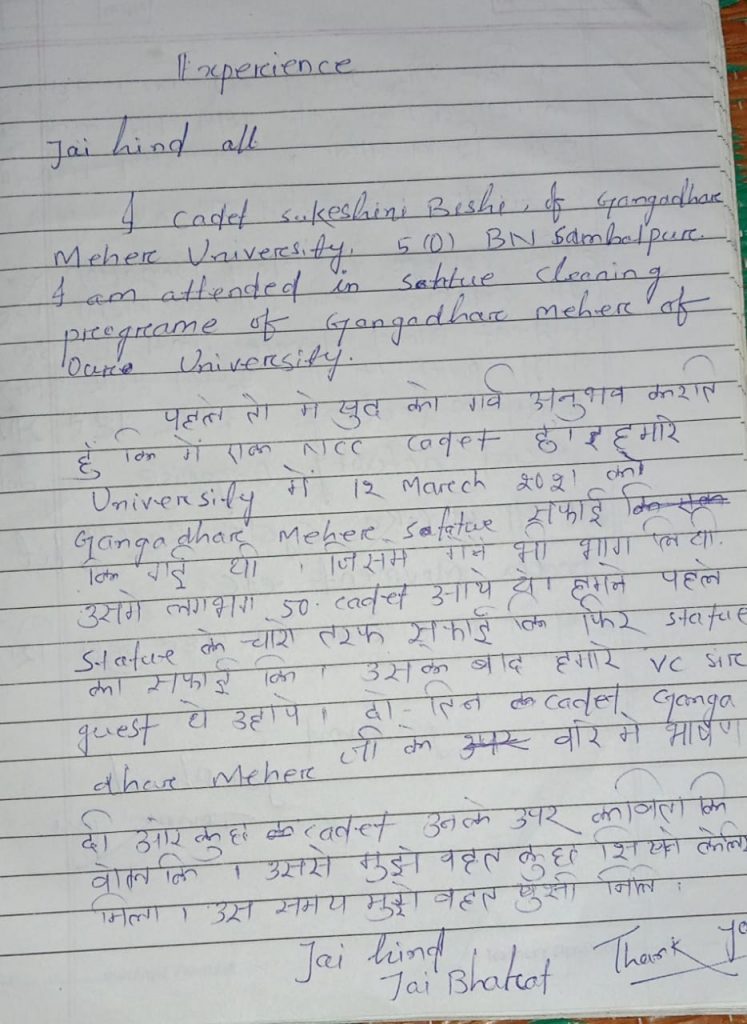 Experience
Jai hind all
I cadet sukeshini Beshi, of Gangadhar
Meher University. 5 (O) BN Sambalpur.
I am attended in satue cleaning
programe of Gangadhar meher of
Oure University.
पहले तो मे खुद को गर्व अनुभव करति
हुँ कि में एक NCC cadet हुँ। हमारे
University में 12 March 2021 को
Gangadhar Meher satue सफाई
कि गई थी । जिसमे मेने भी भाग लियी.
उसमे लगभग 50. cadet आये थे। हमने पहले
statue के चारो तरफ सफाई कि फिर statue
का सफाई कि । उसके बाद हमारे VC sir
guest थे उहापे । दो-तिन cadet Ganga
dhar Meher जी के वारे मे भाषण
दी और कुछ cadet उनके उपर कविता कि
वोल कि । उससे मुझे वहत कुछ शिखने केलिए
मिला । उस समय मुझे वहत खुसी मिलि ।
Jai hind
Jai Bharat
Thank